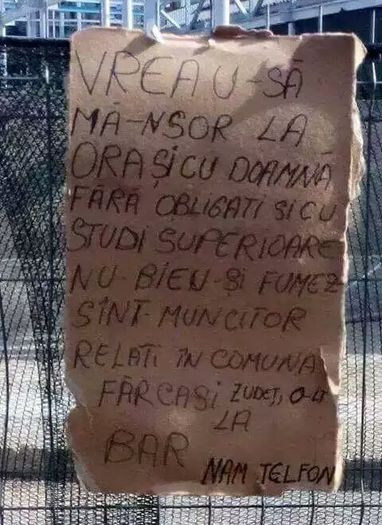 VREAU-SĂ
MĂ-NSOR LA
ORAȘICU DOAMNĂ
FĂRĂ OBLIGATI SICU
STUDI SUPERIOARE
NU-BIEU-ȘI FUMEZ
SÎNT-MUNCITOR
RELATI ÎN COMUNA
FĂRCASI ZUDEȚ, O-LT
LA
BAR
NAM TELFON